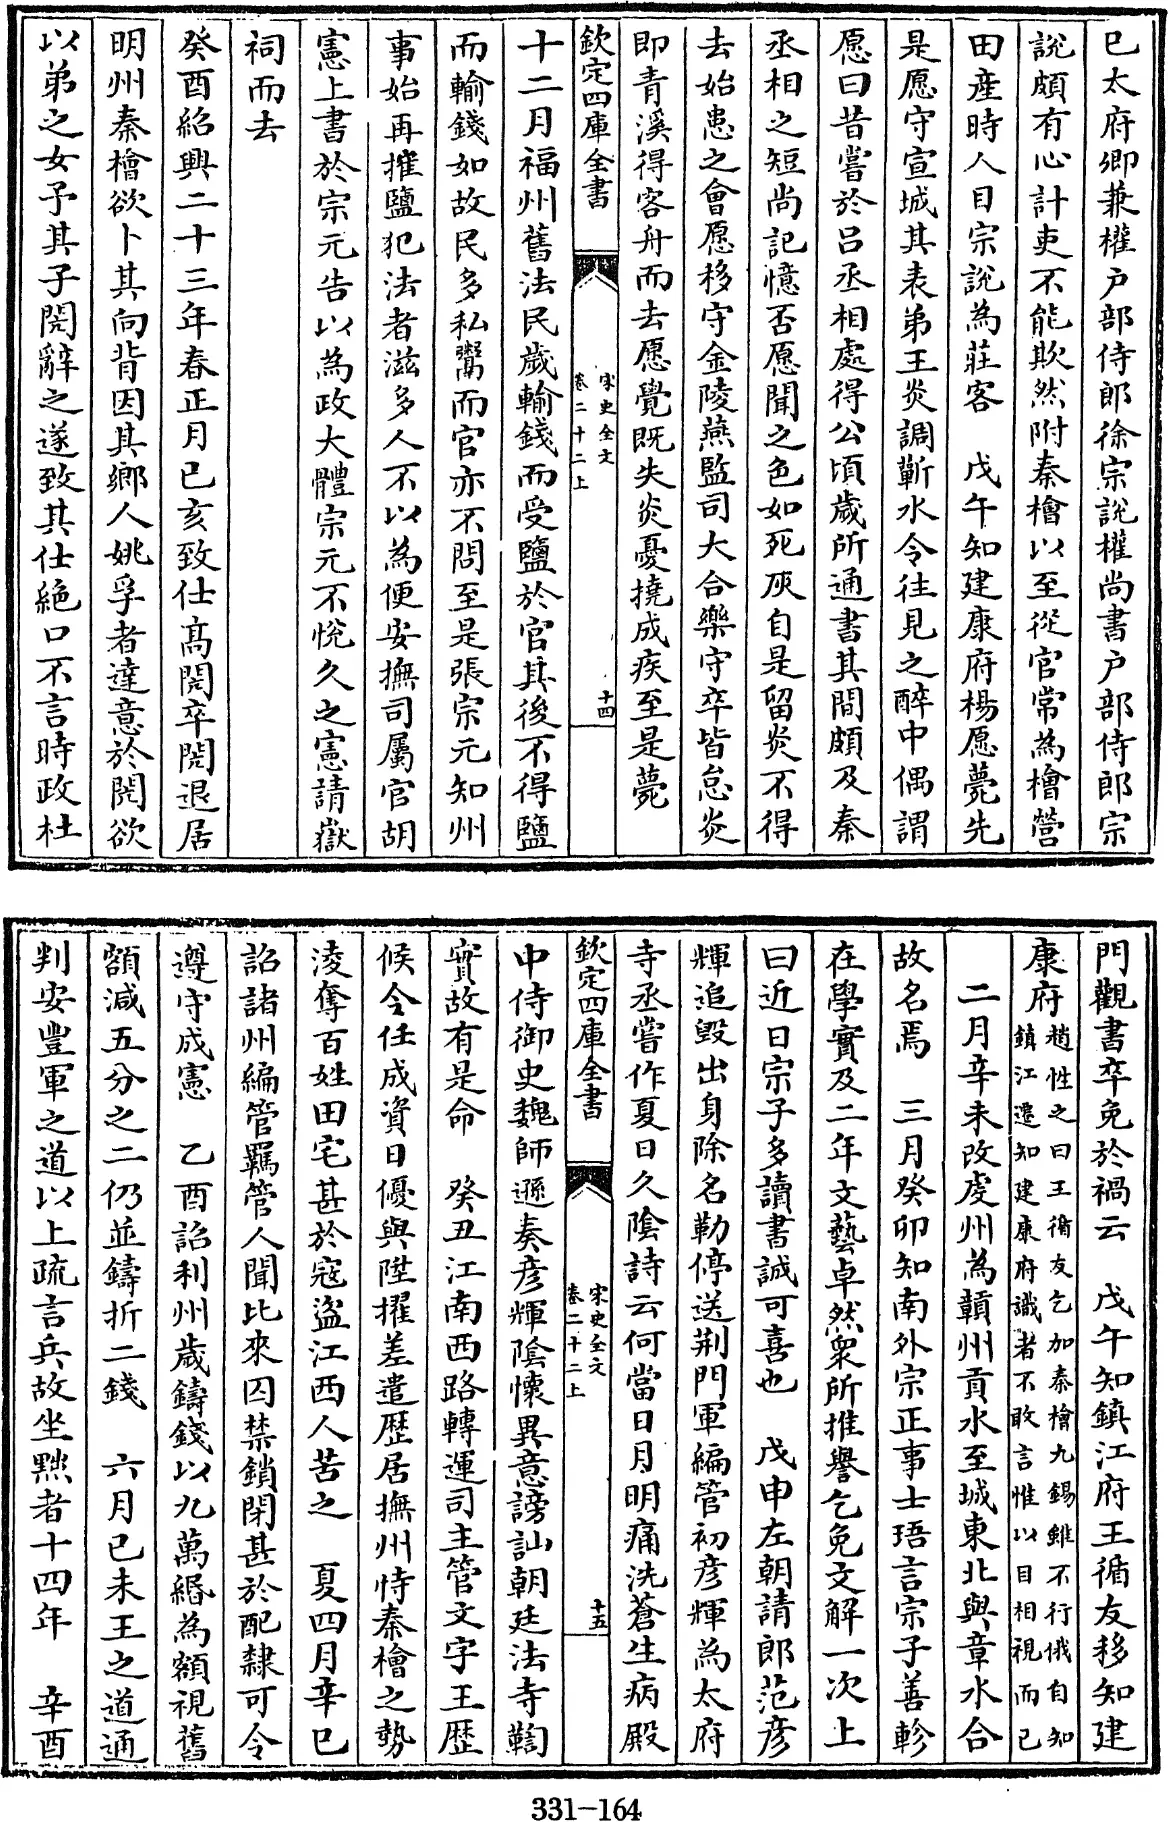 巳太府卿兼權戸部侍郎徐宗說權尚書戸部侍郎宗
說頗有心計吏不能欺然附秦檜以至從官常為檜營
田產時人目宗說為莊客　戊午知建康府楊愿薨先
是愿守宣城其表弟王炎調蘄水令往見之醉中偶謂
愿曰昔嘗於呂丞相處得公頃歲所通書其間頗及秦
丞相之短尚記憶否愿聞之色如死灰自是留炎不得
去始患之會愿移守金陵燕監司大合樂守卒皆怠炎
即青溪得客舟而去愿覺既失炎憂撓成疾至是薨
欽定四庫全書
宋史全文
卷二十二上
十四
十二月福州舊法民歲輸錢而受鹽於官其後不得鹽
而輸錢如故民多私鬻而官亦不問至是張宗元知州
事始再搉鹽犯法者滋多人不以為便安撫司屬官胡
憲上書於宗元告以為政大體宗元不悅久之憲請嶽
祠而去
癸酉紹興二十三年春正月己亥致仕高閌卒閌退居
明州秦檜欲卜其向背因其鄉人姚孚者達意於閌欲
以弟之女予其子閌辭之遂致其仕絶口不言時政杜
門觀書卒免於禍云　戊午知鎮江府王循友移知建
康府
趙性之曰王循友乞加秦檜九錫雖不行俄自知
鎮江遷知建康府識者不敢言惟以目相視而已
二月辛未改虔州為贛州貢水至城東北與章水合
故名焉　三月癸卯知南外宗正事士珸言宗子善軫
在學實及二年文藝卓然衆所推譽乞免文解一次上
曰近日宗子多讀書誠可喜也　戊申左朝請郎范彦
輝追毀出身除名勒停送荆門軍編管初彦輝為太府
寺丞嘗作夏日久陰詩云何當日月明痛洗蒼生病殿
欽定四庫全書
宋史全文
卷二十二上
十五
中侍御史魏師遜奏彦輝陰懷異意謗訕朝廷法寺鞫
實故有是命　癸丑江南西路轉運司主管文字王歴
候今任成資日優與陞擢差遣歴居撫州恃秦檜之勢
淩奪百姓田宅甚於寇盗江西人苦之　夏四月辛巳
詔諸州編管羈管人聞比來囚禁鎖閉甚於配隸可令
遵守成憲　乙酉詔利州歲鑄錢以九萬緡為額視舊
額減五分之二仍並鑄折二錢　六月己未王之道通
判安豐軍之道以上疏言兵故坐黜者十四年　辛酉
331-164